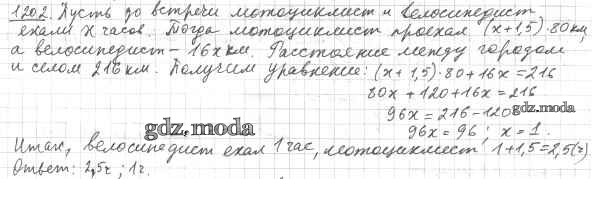 1202. Пусть до встречи мотоциклист и велосипедист
ехали x часов. Тогда мотоциклист проехал (x+1,5)·80 км,
а велосипедист – 16x км. Расстояние между городом
и селом 216 км. Получим уравнение: (x+1,5)·80+16x=216
80x+120+16x=216
96x=216-120
gdz.moda
96x=96; x=1.
gdz.moda
Итак, велосипедист ехал 1 час, мотоциклист 1+1,5=2,5(ч)
Ответ: 2,5ч; 1ч.